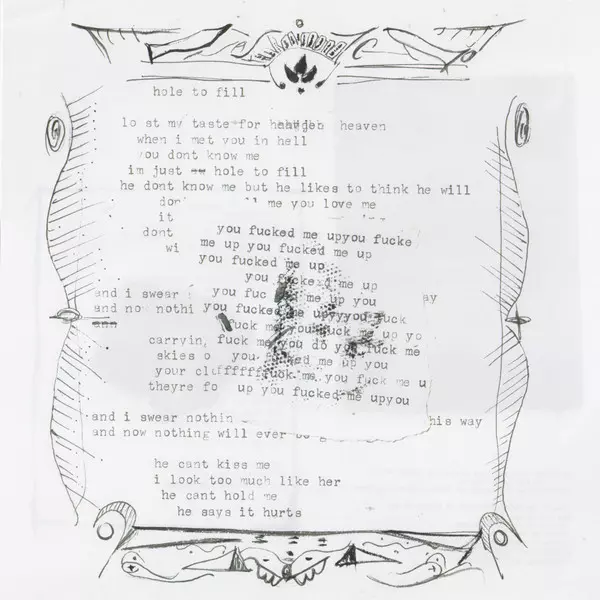 hole to fill
lo st my taste for heaven
when i met you in hell
you dont know me
im just hole to fill
he dont know me but he likes to think he will
me you love me
it
dont
you fucked me upyou fucke
wi
me up you fucked me up
you fucked me up
you fucked me up
and i swear
you fuc me up you
ay
and now nothi
you fucked me upyyyou fuck
fuck me you fuck me up yo
carryin
fuck me you do you fuck me
skies o
you fucked me up you
your cl
uffffffuck me you fuck me u
theyre fo
up you fucked me upyou
and i swear nothin
his way
and now nothing will ever
he cant kiss me
i look too much like her
he cant hold me
he says it hurts